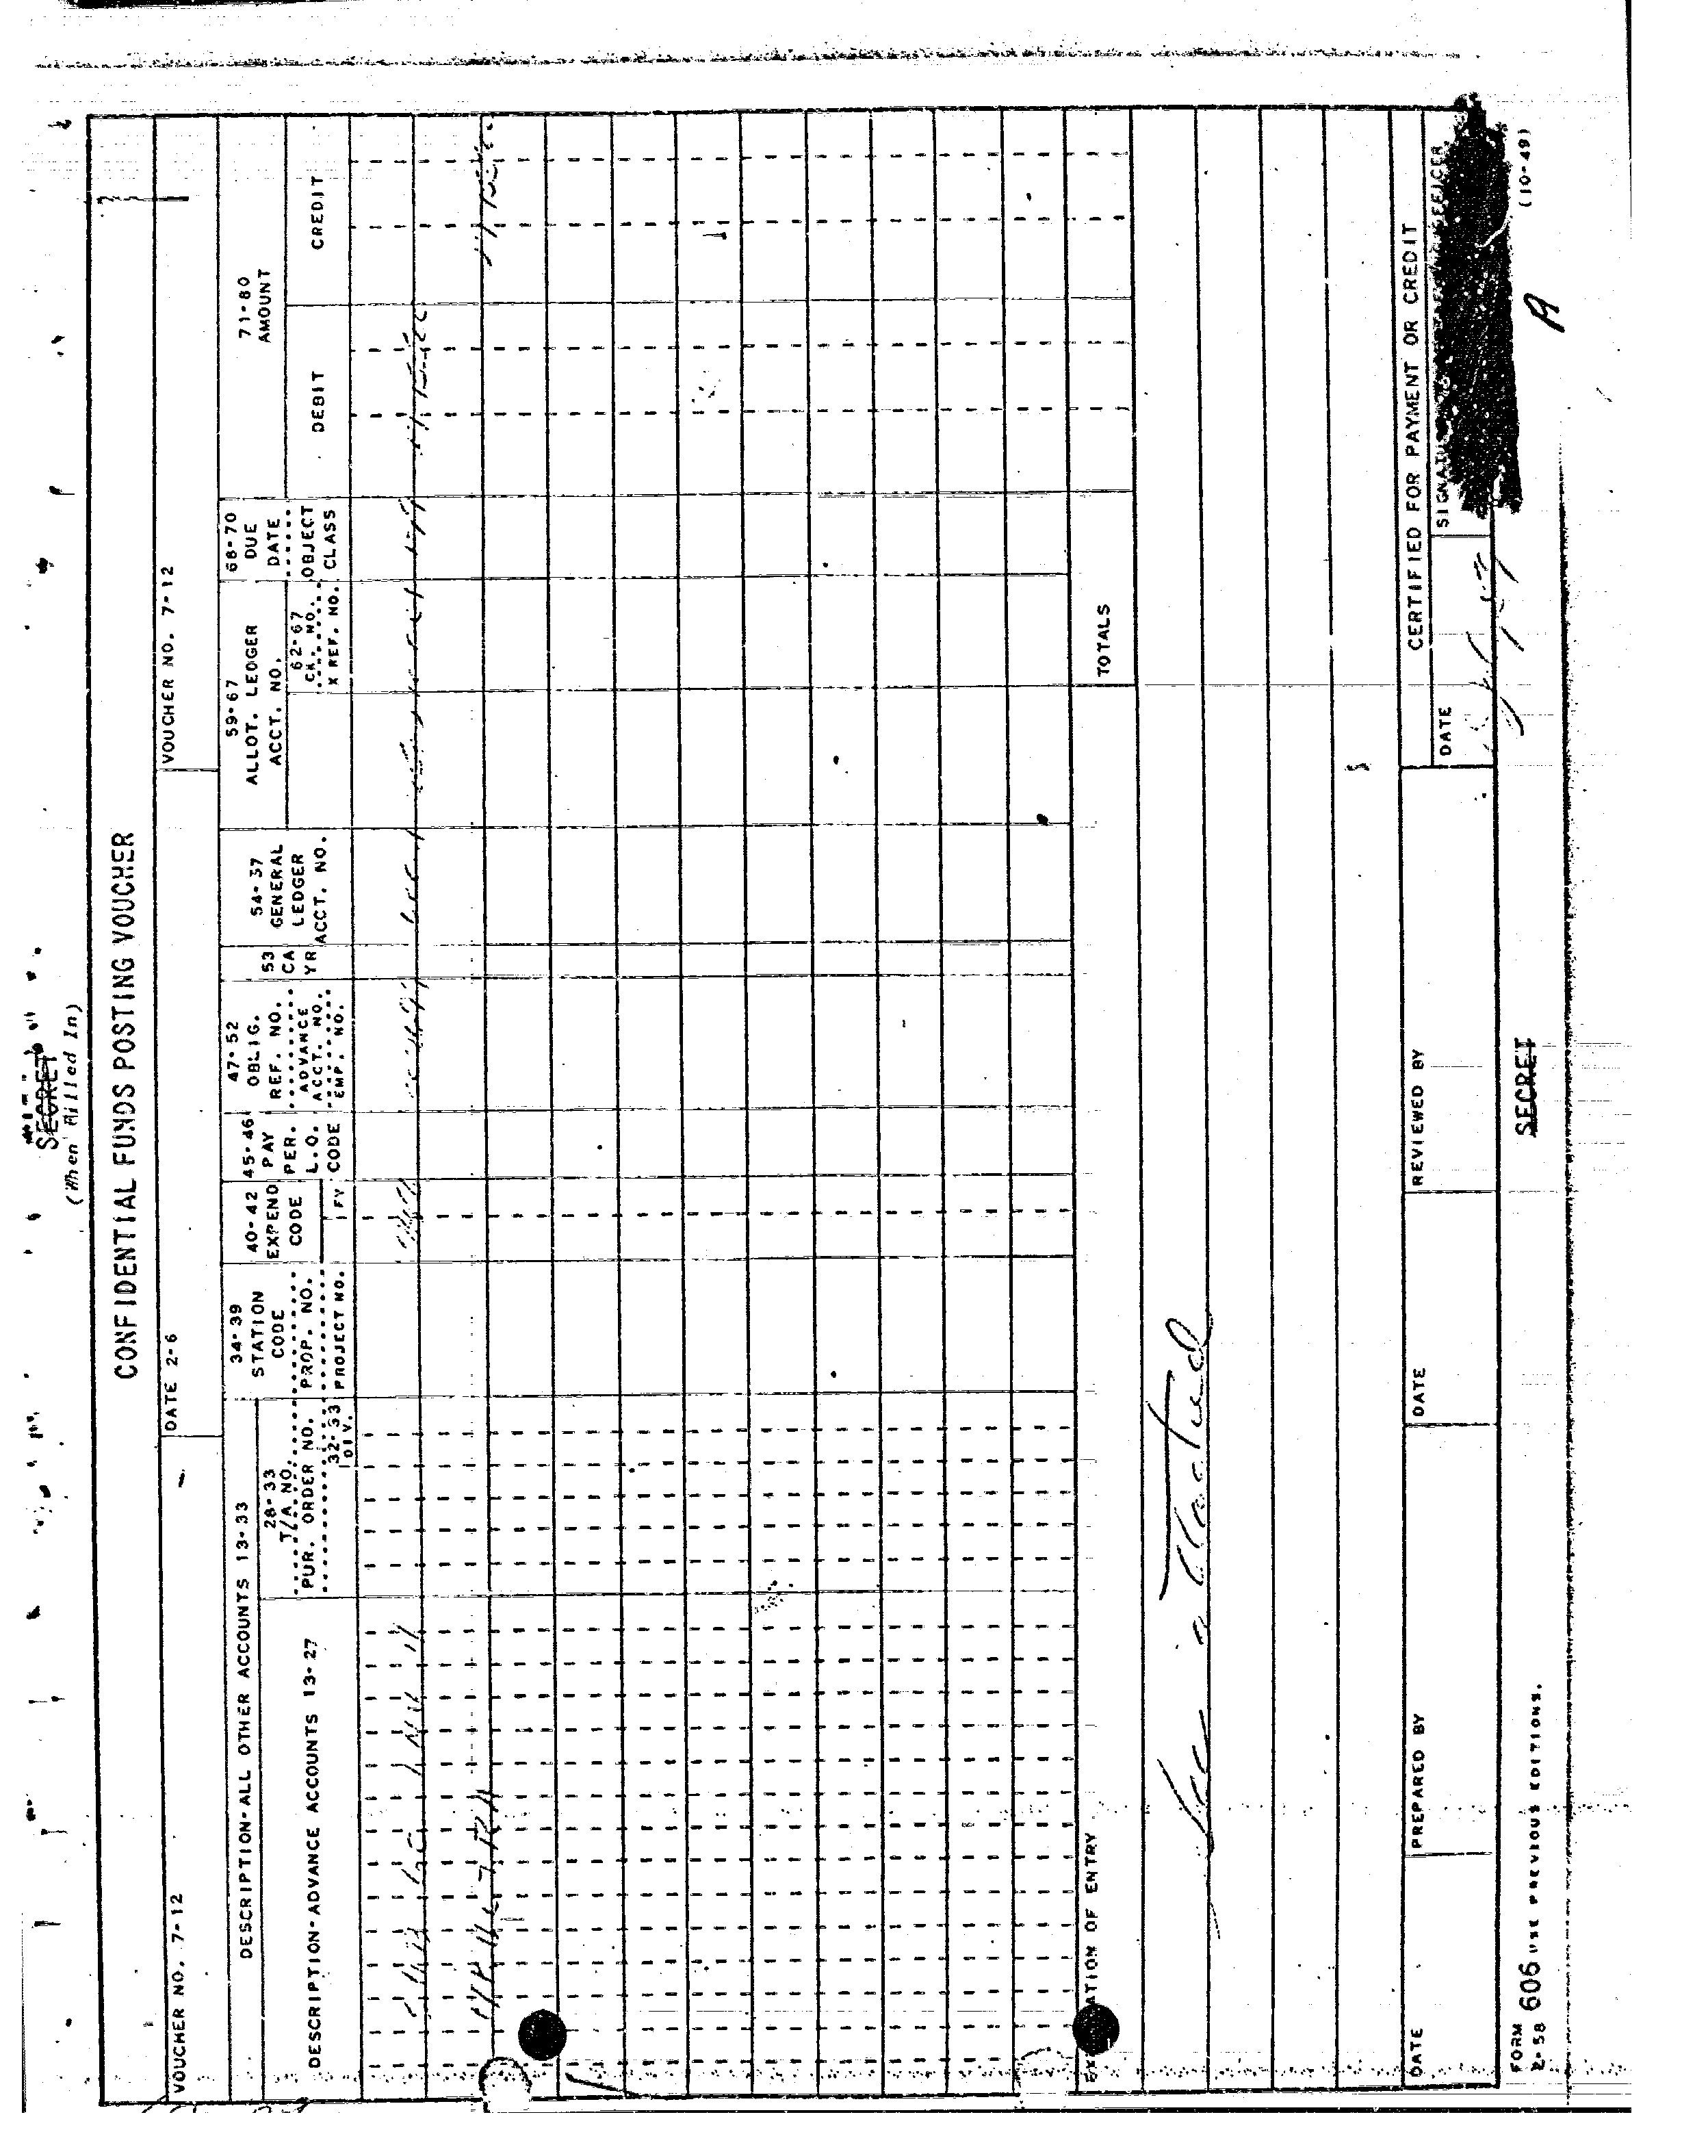 SECRET
(When Filled In)
CONFIDENTIAL FUNDS POSTING VOUCHER
VOUCHER NO. 7-12
DATE 2-6
VOUCHER NO. 7-12
DESCRIPTION-ALL OTHER ACCOUNTS 13-33
DESCRIPTION-ADVANCE ACCOUNTS 13-27
28-33
T/A NO.
PUR. ORDER NO.
32-33
DIV.
34-39
STATION
CODE
PROP. NO.
PROJECT NO.
40-42
EXPEND
CODE
FY
45-46
PAY
PER.
L.O.
CODE
47-52
OBLIG.
REF. NO.
ADVANCE
ACCT. NO.
EMP. NO.
53
CA
YR
54-37
GENERAL
LEDGER
ACCT. NO.
59-67
ALLOT. LEDGER
ACCT. NO.
62-67
CK. NO.
X REF. NO.
68-70
DUE
DATE
OBJECT
CLASS
71-80
AMOUNT
DEBIT
CREDIT
TOTALS
ATION OF ENTRY
See attached
DATE
PREPARED BY
DATE
REVIEWED BY
CERTIFIED FOR PAYMENT OR CREDIT
DATE
SIGNATU
FORM
2-58 606 USE PREVIOUS EDITIONS.
SECRET
A
(10-49)